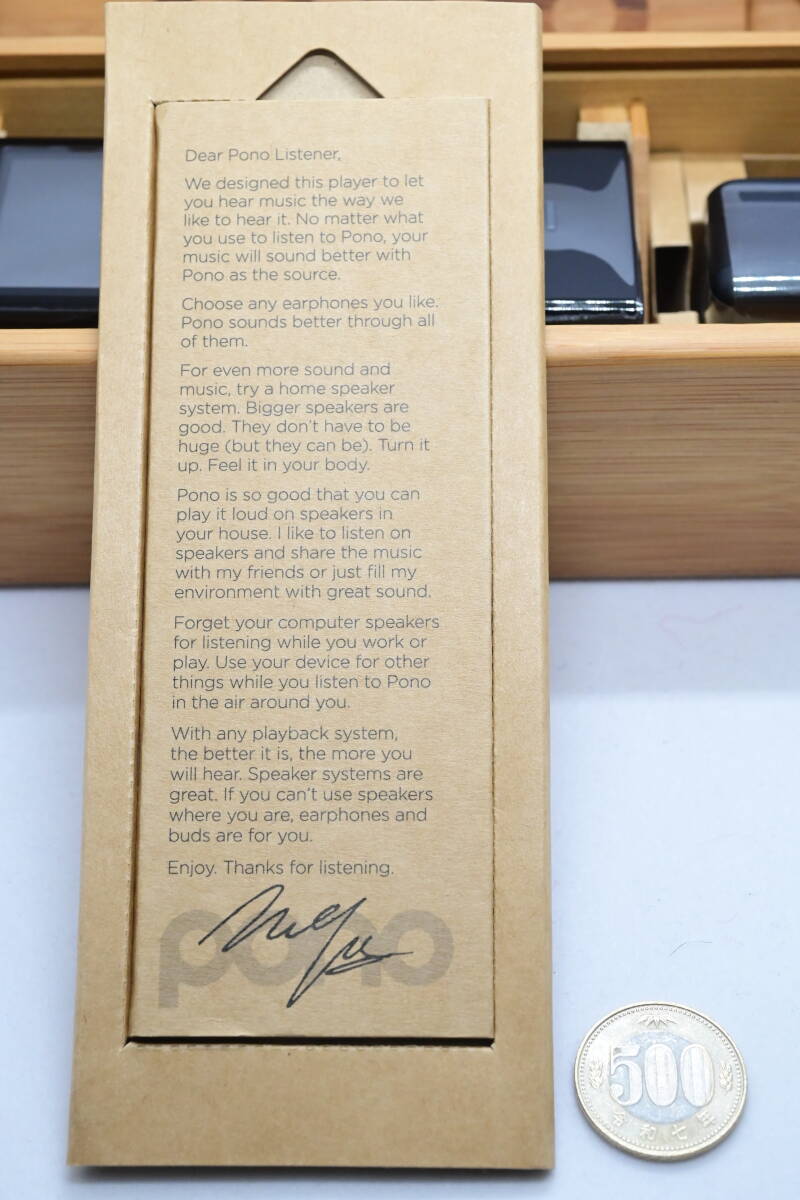 Dear Pono Listener,
We designed this player to let
you hear music the way we
like to hear it. No matter what
you use to listen to Pono, your
music will sound better with
Pono as the source.
Choose any earphones you like.
Pono sounds better through all
of them.
For even more sound and
music, try a home speaker
system. Bigger speakers are
good. They don't have to be
huge (but they can be). Turn it
up. Feel it in your body.
Pono is so good that you can
play it loud on speakers in
your house. I like to listen on
speakers and share the music
with my friends or just fill my
environment with great sound.
Forget your computer speakers
for listening while you work or
play. Use your device for other
things while you listen to Pono
in the air around you.
With any playback system,
the better it is, the more you
will hear. Speaker systems are
great. If you can't use speakers
where you are, earphones and
buds are for you.
Enjoy. Thanks for listening.
pono
500
令和七年